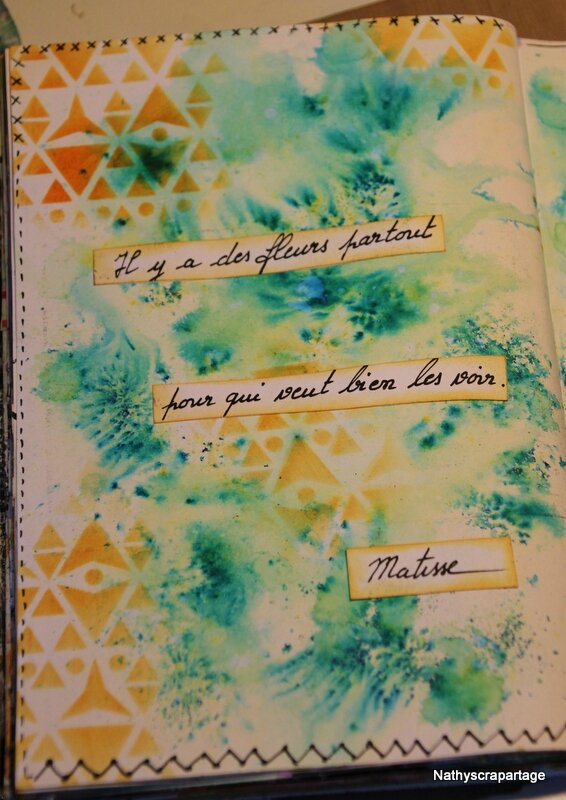 Il y a des fleurs partout
pour qui veut bien les voir.
Matisse
Nathyscrapartage